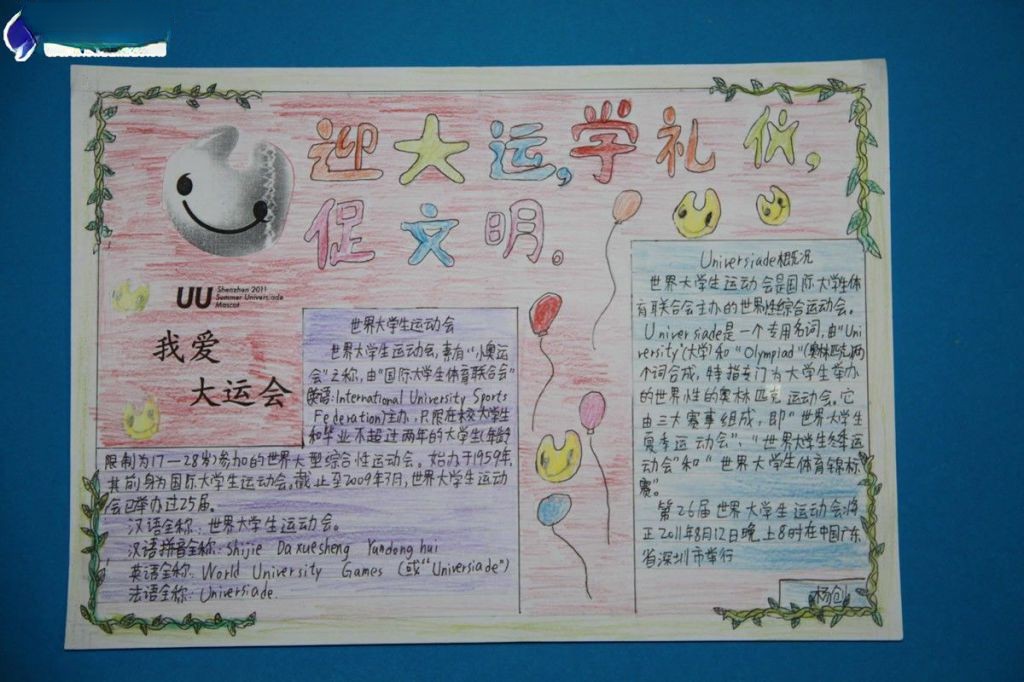 迎大运,学礼仪,
促文明。
UU Shenzhen 2011
Summer Universiade
Mascot
我爱
大运会
世界大学生运动会
世界大学生运动会,素有"小奥运
会"之称,由"国际大学生体育联合会"
(英语:International University Sports
Federation)主办,只限在校大学生
和毕业不超过两年的大学生(年龄
限制为17—28岁)参加的世界大型综合性运动会。始办于1959年,
其前身为国际大学生运动会,截止至2009年3月,世界大学生运动
会已举办过25届。
汉语全称:世界大学生运动会。
汉语拼音全称:Shijie Daxuesheng Yundonghui
英语全称:World University Games (或"Universiade")
法语全称:Universiade.
Universiade概况
世界大学生运动会是国际大学生体
育联合会主办的世界性综合运动会。
Universiade是一个专用名词,由"Uni
versity"(大学)和"Olympiad"(奥林匹克)两
个词合成,特指专门为大学生举办
的世界性的奥林匹克运动会。它
由三大赛事组成,即"世界大学生
夏季运动会"、"世界大学生冬季运
动会"和"世界大学生体育锦标
赛"。
第26届世界大学生运动会将
正2011年8月12日晚上8时在中国广东
省深圳市举行